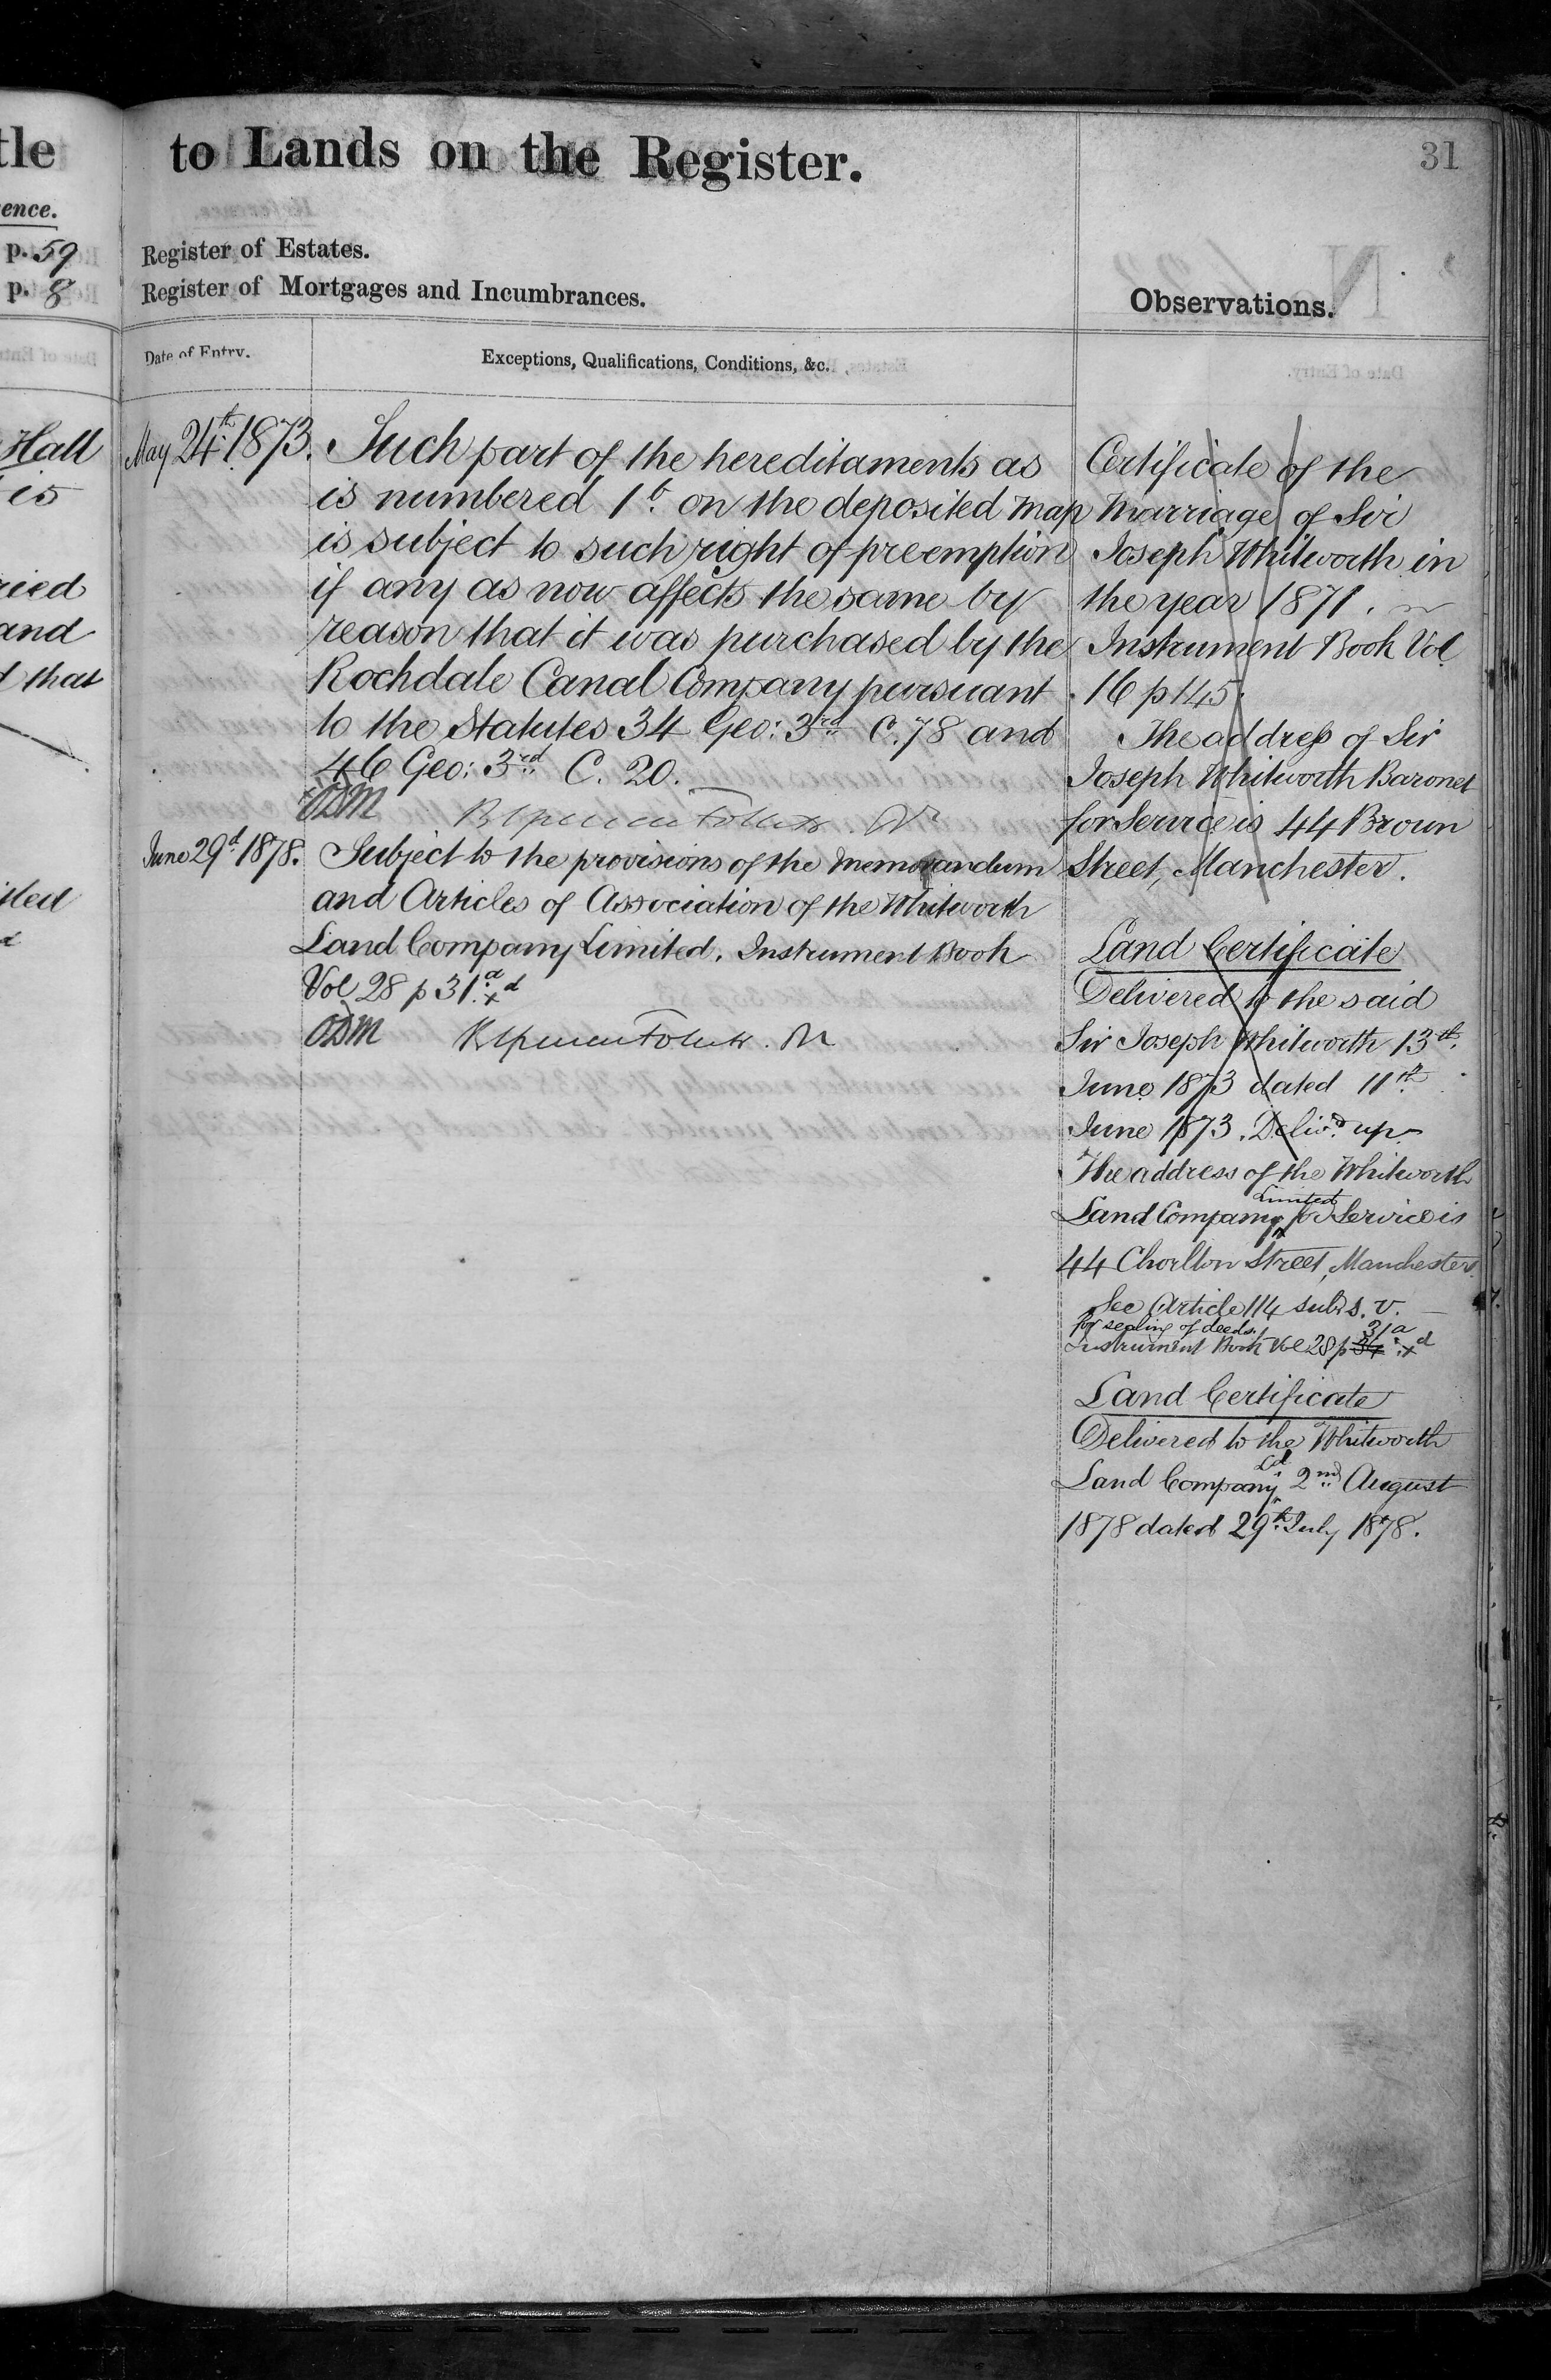 tle
ence.
p. 59
p. 8
Hall
is
ried
and
d that
to Lands on the Register.
31
Register of Estates.
Register of Mortgages and Incumbrances.
Observations.
Date of Entry.
Exceptions, Qualifications, Conditions, &c.
May 24th 1873.
Such part of the hereditaments as
is numbered 1b. on the deposited map
is subject to such right of preemption
if any as now affects the same by
reason that it was purchased by the
Rochdale Canal Company pursuant
to the Statutes 34 Geo: 3rd C. 78 and
46 Geo: 3rd C. 20.
ODM
June 29th 1878.
Subject to the provisions of the Memorandum
and Articles of Association of the Whitworth
Land Company Limited. Instrument Book
Vol 28 p 31a x d
ODM
Certificate of the
Marriage of Sir
Joseph Whitworth in
the year 1871.
Instrument Book Vol
16 p 145.
The address of Sir
Joseph Whitworth Baronet
for Service is 44 Brown
Street, Manchester.
Land Certificate
Delivered to the said
Sir Joseph Whitworth 13th
June 1873 dated 11th
June 1873. Delivd up
The address of the Whitworth
Land Company Limited for Service is
44 Chorlton Street, Manchester.
See Article 114 subs. v.
for sealing of deeds.
Instrument Book Vol 28 p 34 31a x d
Land Certificate
Delivered to the Whitworth
Land Company Ld 2nd August
1878 dated 29th July 1878.